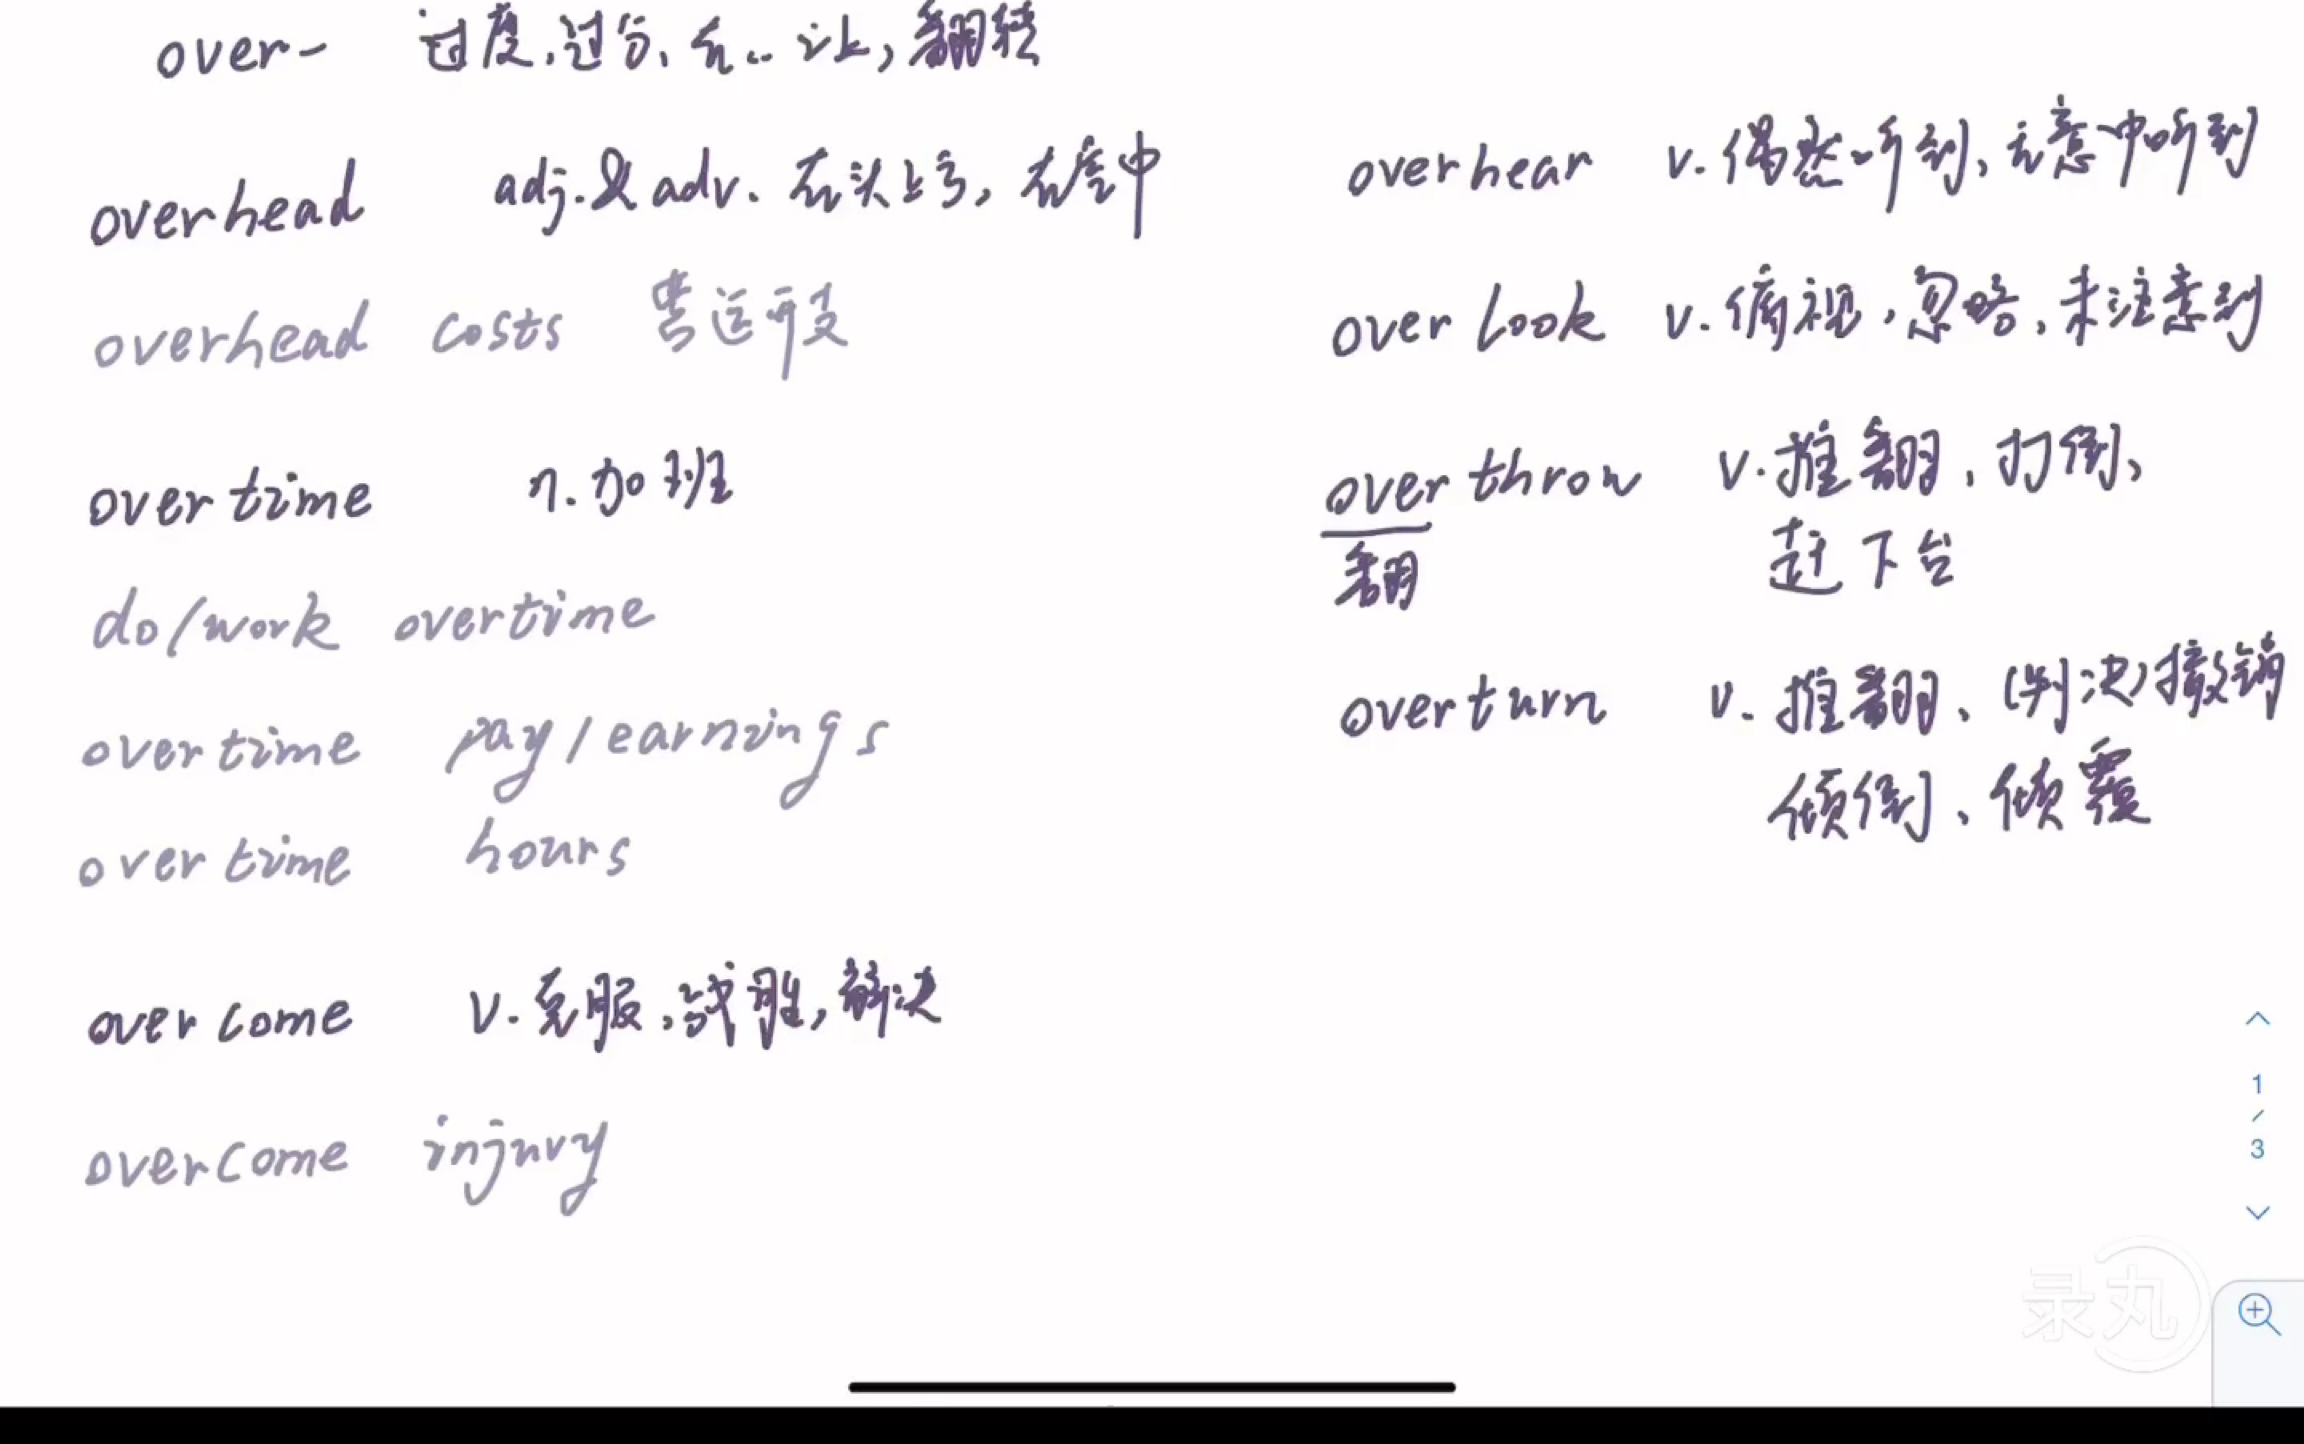 over- 过度,过分,在..之上,翻转
overhead adj.&adv. 在头上方,在空中
overhead costs 营运开支
overtime n.加班
do/work overtime
overtime pay/earnings
overtime hours
overcome v.克服,战胜,解决
overcome injury
overhear v.偶然听到,无意中听到
overlook v.俯视,忽略,未注意到
overthrow v.推翻,打倒、
翻 赶下台
overturn v.推翻、(判决)撤销
倾倒、倾覆
1
/
3
录丸